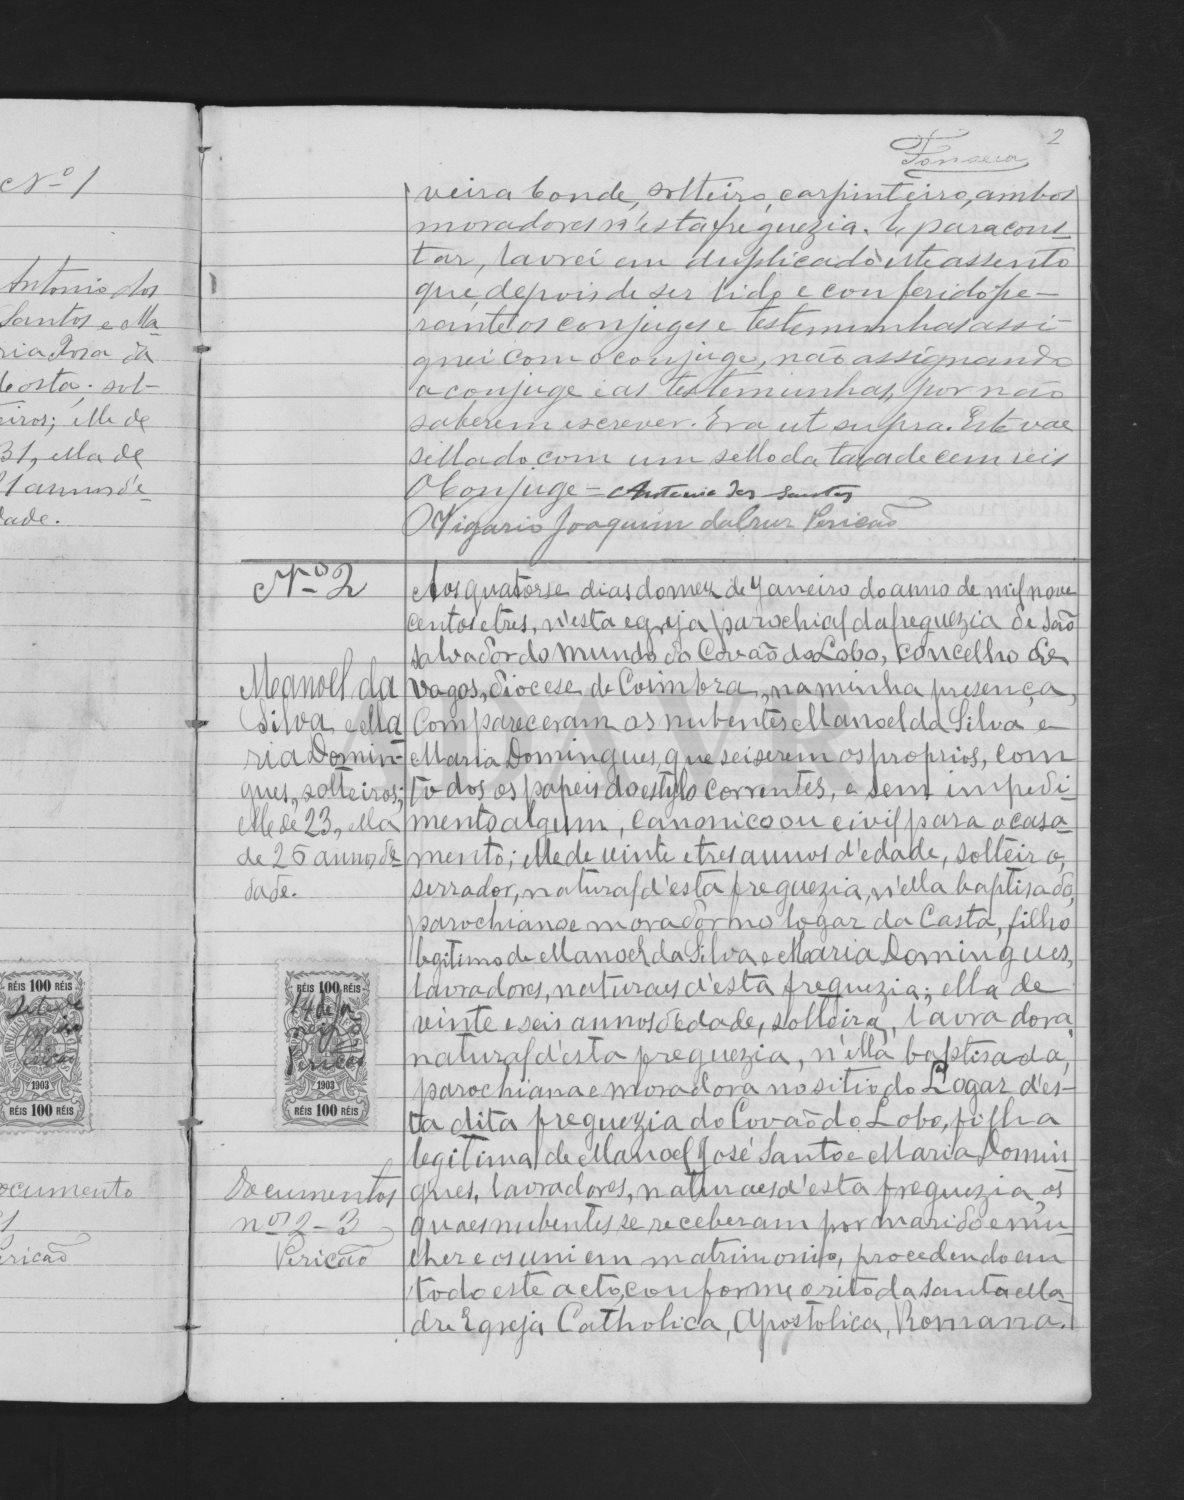 Nº 1
Antonio dos
Santos e Ma
ria Rosa da
Costa, sol-
teiros; elle de
31, ella de
21 annos d'e-
dade.
RÉIS 100 RÉIS
1903
RÉIS 100 RÉIS
ocumento
Pericão
2
Fonseca
veira Conde, solteiro, carpinteiro, ambos
moradores n'esta freguezia. E para cons-
tar, lavrei em duplicado este assento
que, depois de ser lido e conferido pe-
rante os conjuges e testemunhas assi-
gnei com o conjuge, não assignando
a conjuge e as testemunhas, por não
saberem escrever. Era ut supra. Este vae
sellado com um sello da taxa de cem reis
O Conjuge = Antonio dos Santos
O Vigario Joaquim da Cruz Pericão
Nº 2
Manoel da
Silva e Ma
ria Domin-
gues, solteiros;
elle de 23, ella
de 26 annos de
dade.
RÉIS 100 RÉIS
14 de Ja
neiro
Pericão
1903
RÉIS 100 RÉIS
Documentos
nos 2-3
Pericão
Aos quatorse dias do mez de Janeiro do anno de mil nove
centos e tres, n'esta egreja parochial da freguezia de São
Salvador do Mundo do Covão do Lobo, concelho de
Vagos, diocese de Coimbra, na minha presença,
Compareceram os nubentes Manoel da Silva e
Maria Domingues, que sei serem os proprios, com
todos os papeis do estylo correntes, e sem impedi-
mento algum, canonico ou civil para o casa-
mento; elle de vinte e tres annos d'edade, solteiro,
serrador, natural d'esta freguezia, n'ella baptisado,
parochiano e morador no logar da Casta, filho
legitimo de Manoel da Silva e Maria Domingues,
lavradores, naturaes d'esta freguezia; ella de
vinte e seis annos de edade, solteira, lavradora,
natural d'esta freguezia, n'ella baptisada,
parochiana e moradora no sitio do Logar d'es-
ta dita freguezia do Covão do Lobo, filha
legitima de Manoel José Santo e Maria Domin
gues, lavradores, naturaes d'esta freguezia, os
quaes nubentes se receberam por marido e mu-
lher e os uni em matrimonio, procedendo em
todo este acto, conforme o rito da Santa Ma-
dre Egreja Catholica, Apostolica, Romana.